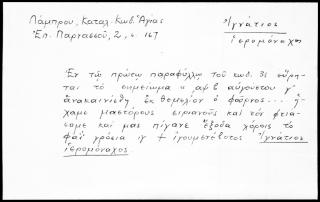 Λάμπρου, Καταλ. Κωδ. Ἁγίας
Ἐπ. Παρνασσοῦ, 2, σ. 167
Ἰγνάτιος
ἱερομόναχος
Ἐν τῷ πρώτῳ παραφύλλῳ τοῦ κωδ. 31 εὕρη-
ται τὸ σημείωμα α αψβ αὐγούστου γ΄
ἀνακαινίσθη ἐκ θεμελίου ὁ φοῦρνος... ἤ-
χαμε μαστόρους καὶ τὸν φτιά-
σαμε καὶ μας πίγανε ἔξοδα χόρεις τὸ
φαΐ γρόσια ιγ + ἡγουμενέβοτος Ἰγνάτιος
ἱερομόναχος.